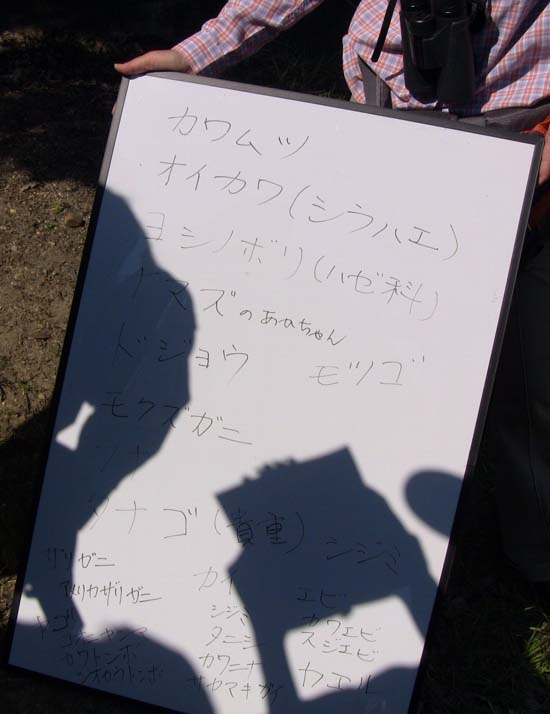 カワムツ
オイカワ(シラハエ)
ヨシノボリ(ハゼ科)
ナマズのあかちゃん
ドジョウ モツゴ
モクズガニ
タナゴ(貴重) シジミ
ザリガニ
アメリカザリガニ
ヤゴ
コオニヤンマ
カワトンボ
シオカラトンボ
カイ
シジミ
タニシ
カワニナ
サカマキガイ
エビ
カワエビ
スジエビ
カエル